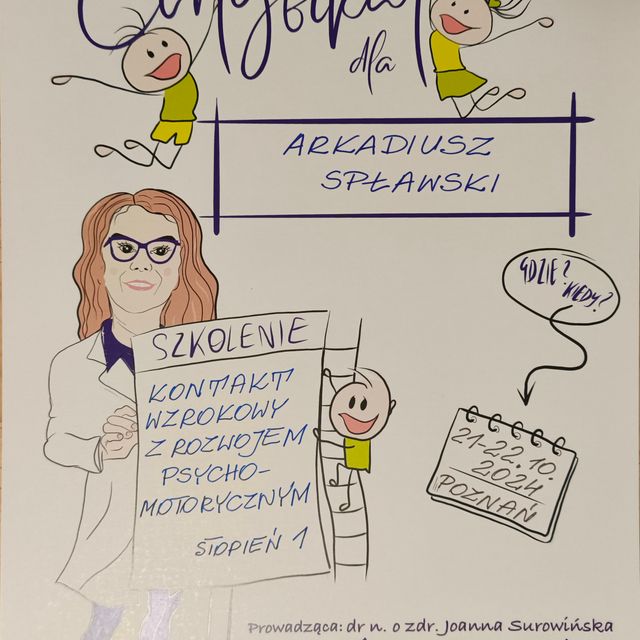 Certyfikat
dla
ARKADIUSZ
SPŁAWSKI
GDZIE?
KIEDY?
SZKOLENIE
KONTAKT
WZROKOWY
Z ROZWOJEM
PSYCHO-
MOTORYCZNYM
STOPIEŃ 1
21-22.10.
2024
POZNAŃ
Prowadząca: dr n. o zdr. Joanna Surowińska